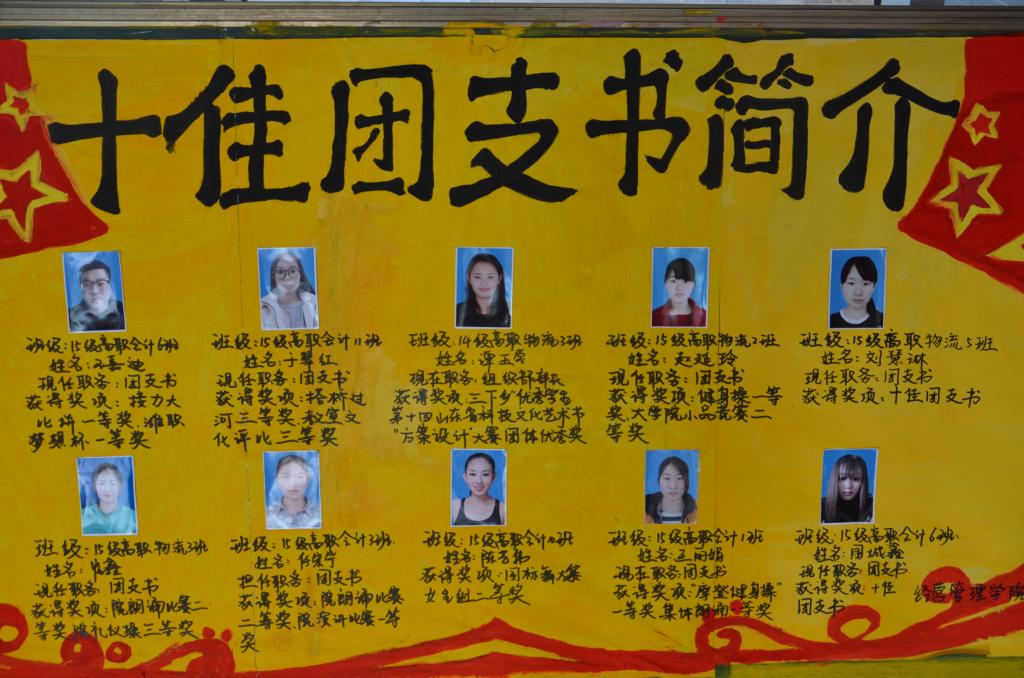 十佳团支书简介
班级:15级高职会计6班
姓名:
现任职务:团支书
获得奖项:接力大
比拼一等奖.潍职
梦想杯一等奖
班级:15级高职会计11班
姓名:于翠红
现任职务:团支书
获得奖项:搭桥过
河三等奖.教室文
化评比三等奖
班级:14级高职物流3班
姓名:谭玉荣
现在职务:组织部部长
获得奖项:三下乡优秀学生
第十四山东省科技文化艺术节
"方案设计"大赛团体优秀奖
班级:15级高职物流2班
姓名:赵延玲
现任职务:团支书
获得奖项:健身操一等
奖.大学院小品竞赛二
等奖
班级:15级高职物流5班
姓名:刘慧琳
现任职务:团支书
获得奖项:十佳团支书
班级:15级高职物流3班
姓名:
现任职务:团支书
获得奖项:院朗诵比赛二
等奖 礼仪操三等奖
班级:15级高职会计3班
姓名:
担任职务:团支书
获得奖项:院朗诵比赛
二等奖,院演讲比赛一等
奖
班级:15级高职会计 班
姓名:
获得奖项:国标舞大赛
女子组二等奖
班级:15级高职会计1班
姓名:王丽娟
现在职务:团支书
获得奖项:"摩登健身操"
一等奖 集体朗诵一等奖
班级:15级高职会计6班
姓名:周城鑫
现任职务:团支书
获得奖项:十佳
团支书
经营管理学院